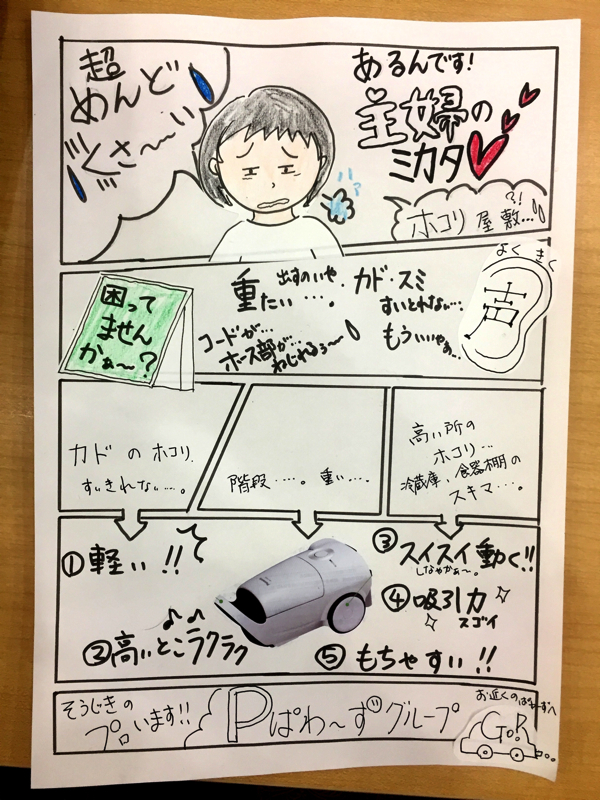 超
めんど
くさ〜い
あるんです!
主婦の
ミカタ
?!
ホコリ屋敷…
困って
ません
かぁ〜?
重たい…。
出すのいや
コードが…
ホース部が…
ねじれるぅ〜
カド・スミ
すいとれない…
もういいやぁ…
よくきく
声
カドのホコリ
すいきれない…。
階段……。重い…。
高い所の
ホコリ…
冷蔵庫、食器棚の
スキマ…。
①軽い!!
②高いとこラクラク
③スイスイ動く!!
しなやかぁ〜。
④吸引力
スゴイ
⑤もちやすい!!
そうじきの
プロいます!!
Pぱわ〜ずグループ
お近くのぱわーずへ
Go!